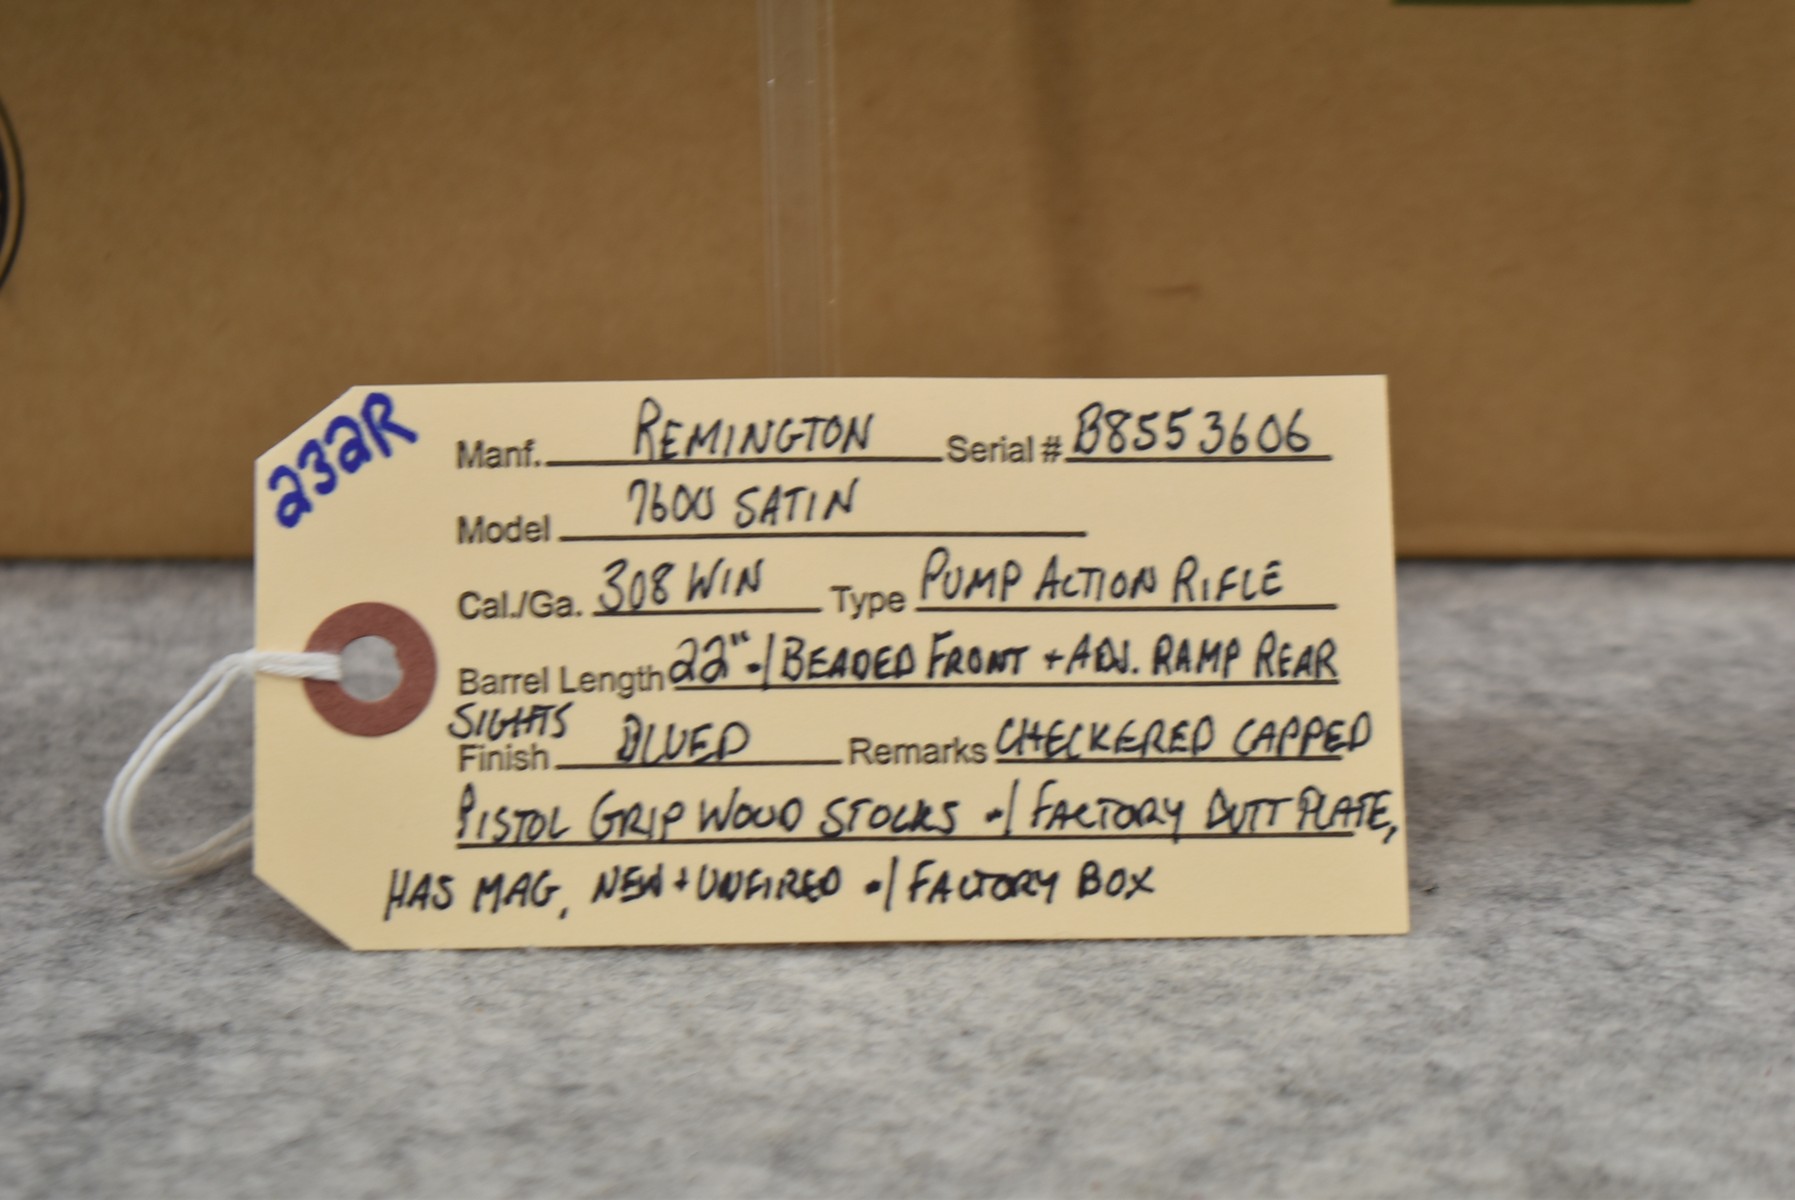 232R
Manf. REMINGTON Serial # B8553606
Model 7600 SATIN
Cal./Ga. 308 WIN Type PUMP ACTION RIFLE
Barrel Length 22" w/ BEADED FRONT + ADJ. RAMP REAR
SIGHTS
Finish BLUED Remarks CHECKERED CAPPED
PISTOL GRIP WOOD STOCKS w/ FACTORY BUTT PLATE,
HAS MAG, NEW + UNFIRED w/ FACTORY BOX